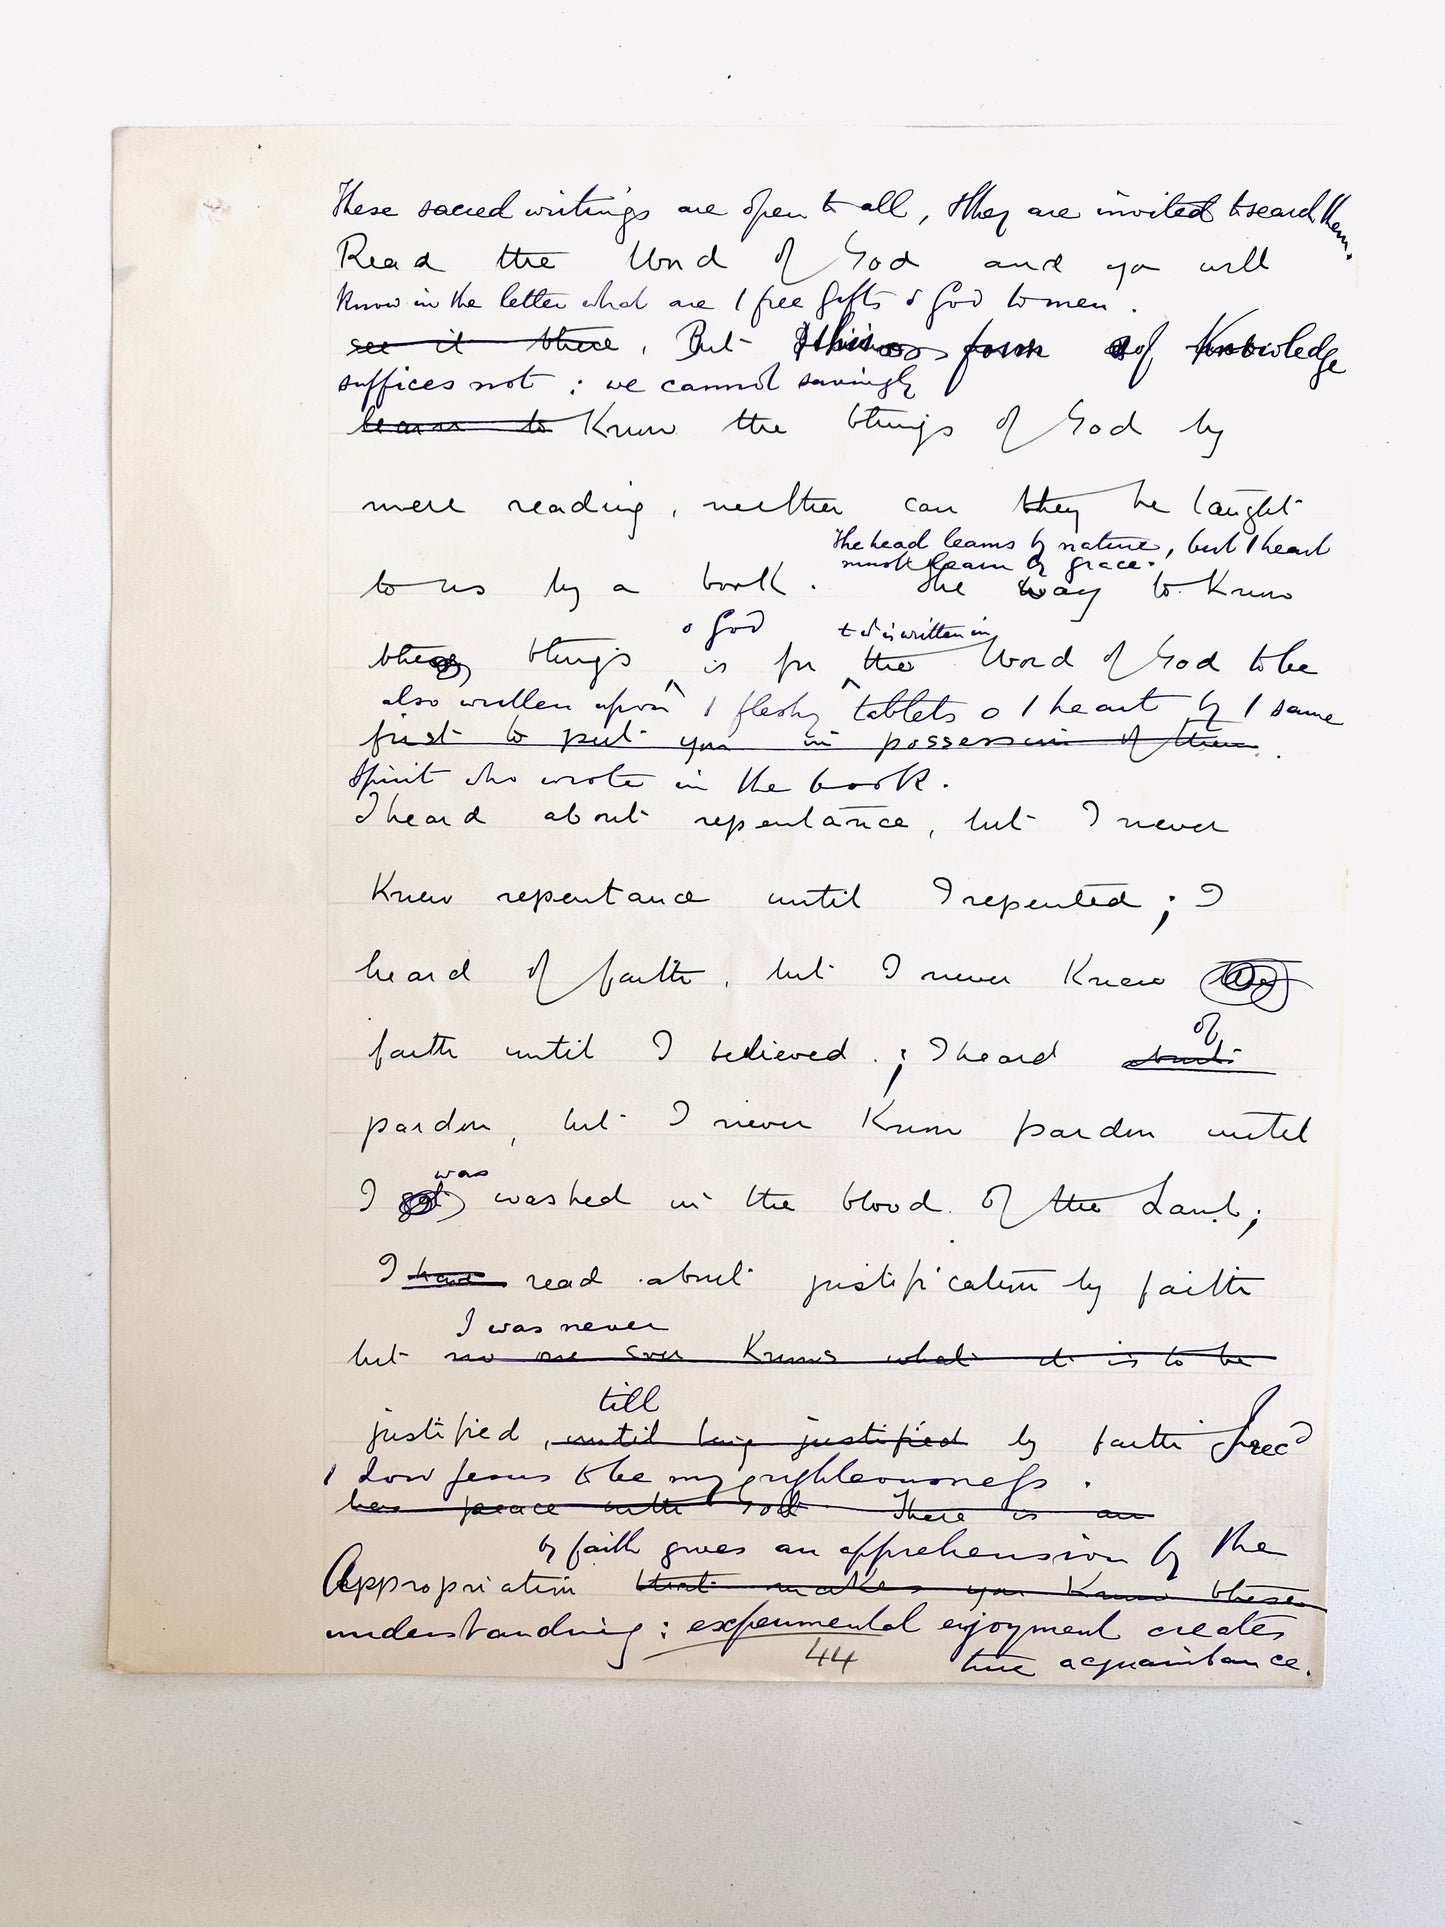 These sacred writings are open to all, & they are invited to search them.
Read the Word of God and you will
know in the letter what are / free gifts o God to men.
see it there, But this form of Knowledge
suffices not: we cannot savingly
learn to Know the things of God by
mere reading, neither can they be taught
The head learns by nature, but / heart
must learn by grace.
to us by a book. The way to Know
o God t wh is written in
these things is for the Word of God to be
also written upon / fleshy tablets o / heart by / same
first to put you in possession of them.
Spirit who wrote in the book.
I heard about repentance, but I never
Knew repentance until I repented; I
heard of faith, but I never Knew
faith until I believed; I heard about
of
pardon, but I never Knew pardon until
was
I got washed in the blood of the Lamb;
I have read about justification by faith
I was never
but no one ever Knows what it is to be
till
justified, until being justified by faith I recd
/ Lord Jesus to be my righteousness.
has peace with God. There is an
by faith gives an apprehension by the
Appropriation that makes you Know these
understanding: experimental enjoyment creates
44
true acquaintance.